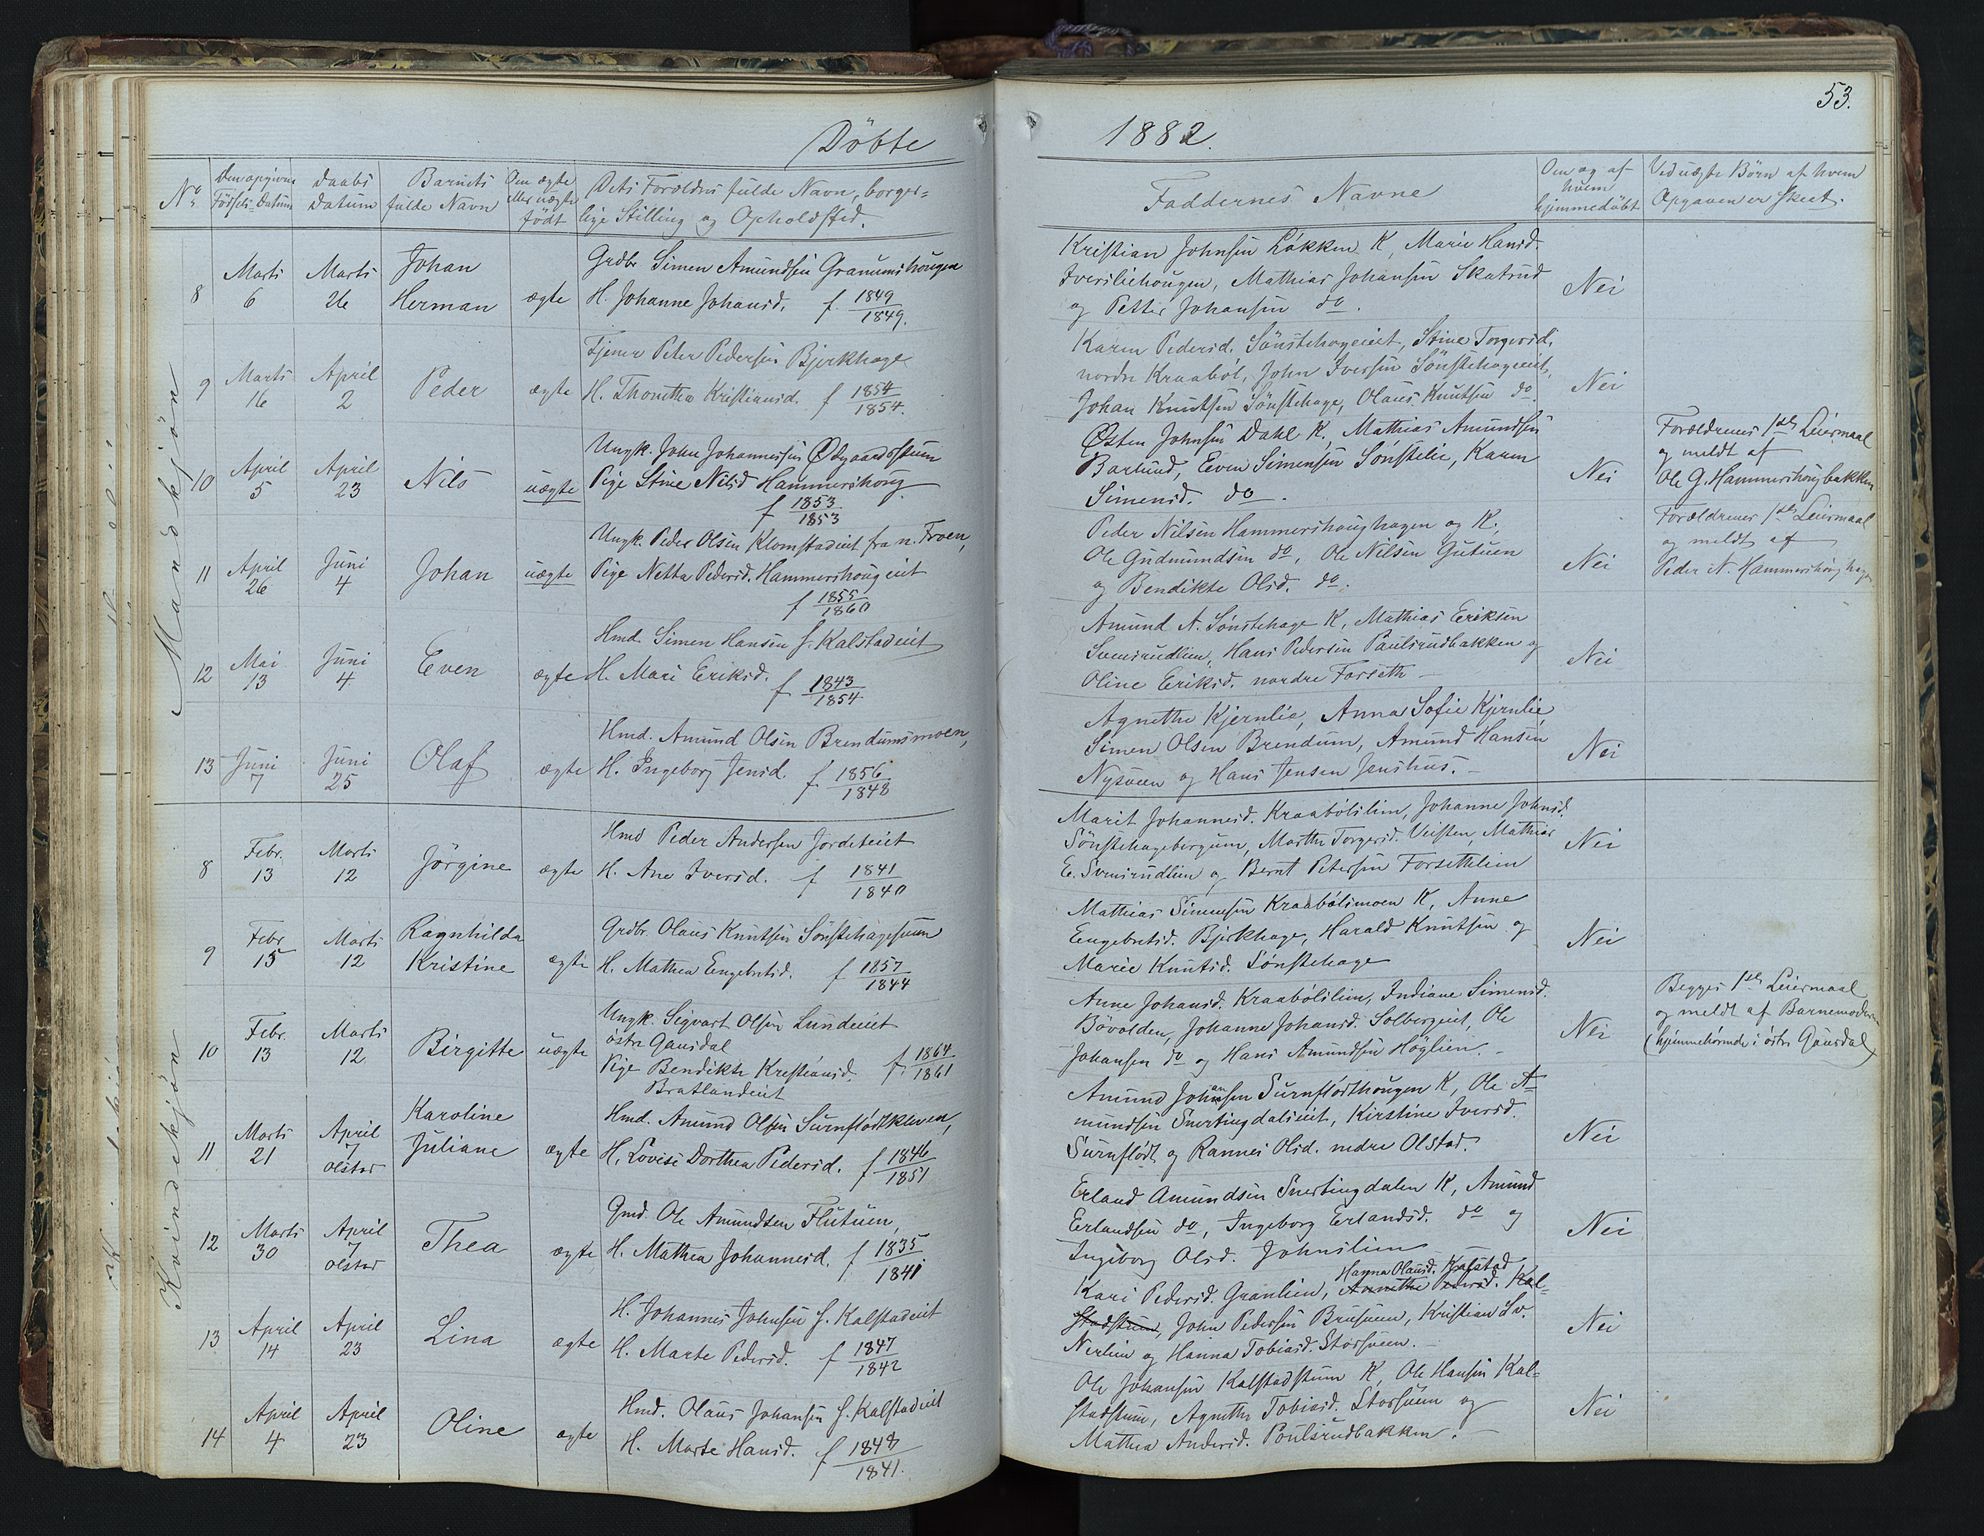 53.
Döbte 1882.
No
Den opgivne Födsels-Datum
Daabs Datum
Barnets fulde Navn
Om ægte eller uægte født
Dets Forældres fulde Navn, borger-
lige Stilling og Opholdssted.
Faddernes Navne
Om og af hvem hjemmedøbt
Ved uægte Børn af hvem
Opgaven er skeet.
Mandkjön
8 Marts 6 Marts 26 Johan Herman ægte
Grdbr Simen Amundsen Granumshougen
H. Johanne Johansd. f. 1849/1849.
Kristian Johnsen Løkken K, Marie Hansd.
Iversliehougen, Mathias Johansen Skatrud
og Petter Johansen do.
Nei
9 Marts 16 April 2 Peder ægte
Tjener Peter Pedersen Bjerkhage
H. Thonetha Kristiansd. f 1854/1854.
Karen Pedersd. Sönstehageeiet, Stine Torgersd.
nordre Kraaböl, John Iversen Sönstehageeiet,
Johan Knutsen Sönstehage, Olaus Knutsen do.
Nei
10 April 5 April 23 Nils uægte
Ungk. John Johannessen Ødegaardsstuen
Pige Stine Nilsd Hammershoug
f 1853/1853
Østen Johnsen Dahl K, Mathias Amundsen
Barlund, Even Simensen Sönstelie, Karen
Simensd. do.
Nei
Forældrenes 1ste Leiermaal
og meldt af
Ole G. Hammershougbakken
11 April 26 Juni 4 Johan uægte
Ungk. Peder Olsen Klomstadeiet fra n. Fron,
Pige Netta Pedersd. Hammershougeiet
f 1855/1860
Peder Nilsen Hammershoughagen og K.
Ole Gudmundsen do, Ole Nilsen Gutuen
og Bendikte Olsd. do.
Nei
Forældrenes 1ste Leiermaal
og meldt af
Peder N. Hammershoughagen
12 Mai 13 Juni 4 Even ægte
Hmd. Simen Hansen s. Kalstadeiet
H. Mari Eriksd. f 1843/1854
Amund A. Sönstehage K, Mathias Eriksen
Svensrudlien, Hans Pedersen Paulsrudbakken og
Oline Eriksd. nordre Forseth
Nei
13 Juni 7 Juni 25 Olaf ægte
Hmd. Amund Olsen Brendumsmoen,
H. Ingeborg Jensd. f 1856/1848
Agnethe Kjernlie, Anna Sofie Kjernlie
Simen Olsen Brendum, Amund Hansen
Nysveen og Hans Jensen Jenshus.
Nei
Kvindekjön
8 Febr. 13 Marts 12 Jörgine ægte
Hmd Peder Andersen Jordeteiet
H. Ane Iversd. f 1841/1840
Marit Johannesd. Kraabölslien, Johanne Johnsd.
Sönstehagebergum, Marthe Torgersd. Veisten, Mathias
E. Svensrudlien og Bernt Petersen Forsethlien
Nei
9 Febr 15 Marts 12 Ragnhilda Kristine ægte
Grdbr. Olaus Knutsen Sönstehagesveen
H. Mathea Engebretsd. f 1857/1844
Mathias Simensen Kraabölsmoen K, Anne
Engebretsd. Bjerkhage, Harald Knutsen og
Marie Knutsd. Sönstehage
Nei
10 Febr. 13 Marts 12 Birgitte uægte
Ungk. Sigvart Olsen Lundeeiet
östre Gausdal
Pige Bendikte Kristiansd. f. 1864/1861
Bratlandeiet
Anne Johansd. Kraabölslien, Indiane Simensd.
Bövolden, Johanne Johansd. Solbergeiet, Ole
Johansen do og Hans Amundsen Höglien.
Nei
Begges 1ste Leiermaal
og meldt af Barnemoderen
(hjemmehørende i östre Gausdal)
11 Marts 21 April 7 Olstad Karoline Juliane ægte
Hmd. Amund Olsen Surnflödtkleven,
H. Lovise Dorthea Pedersd. f 1846/1851
Amund Johansen Surnflödthougen K, Ole A-
mundsen Snertingdalseiet, Kirstine Iversd.
Surnflödt og Rannei Olsd. nedre Olstad.
Nei
12 Marts 30 April 7 Olstad Thea ægte
Gmd. Ole Amundsen Flutuen,
H. Mathea Johannesd. f 1835/1841
Erland Amundsen Snertingdalen K, Amund
Erlandsen do, Ingeborg Erlandsd. do og
Ingeborg Olsd. Johnslien
Nei
13 April 14 April 23 Lina ægte
H. Johannes Johnsen s. Kalstadeiet
H. Marte Pedersd. f 1847/1842
Hanna Olausd. Kalstad
Kari Pedersd. Granlien, Agnethe Pedersd. Kal-
stadstuen, John Pedersen Brusveen, Kristian Sv.
Nerlien og Hanna Tobiasd. Storsveen.
Nei
14 April 4 April 23 Oline ægte
Hmd. Olaus Johansen s. Kalstadeiet
H. Marte Hansd. f 1848/1841.
Ole Johansen Kalstadstuen K, Ole Hansen Kal-
stadstuen, Agnethe Tobiasd. Storsveen og
Mathea Andersd. Poulsrudbakken.
Nei